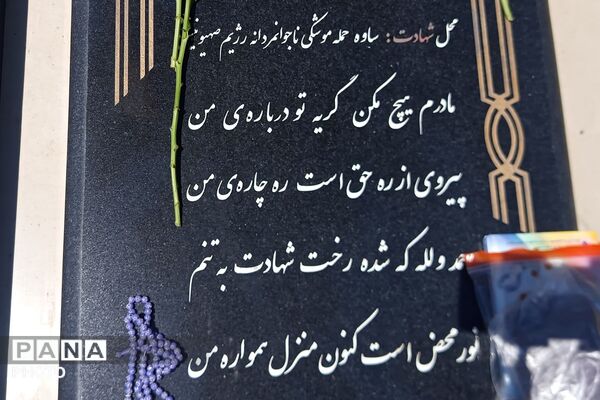 محل شهادت: ساوه حمله موشکی ناجوانمردانه رژیم صهیونیـ
مادرم هیچ مکن گریه تو درباره‌ی من
پیروی از ره حق است ره چاره‌ی من
حمد و لله که شده رخت شهادت به تنم
نور محض است کنون منزل همواره من
PANA
PHOTO